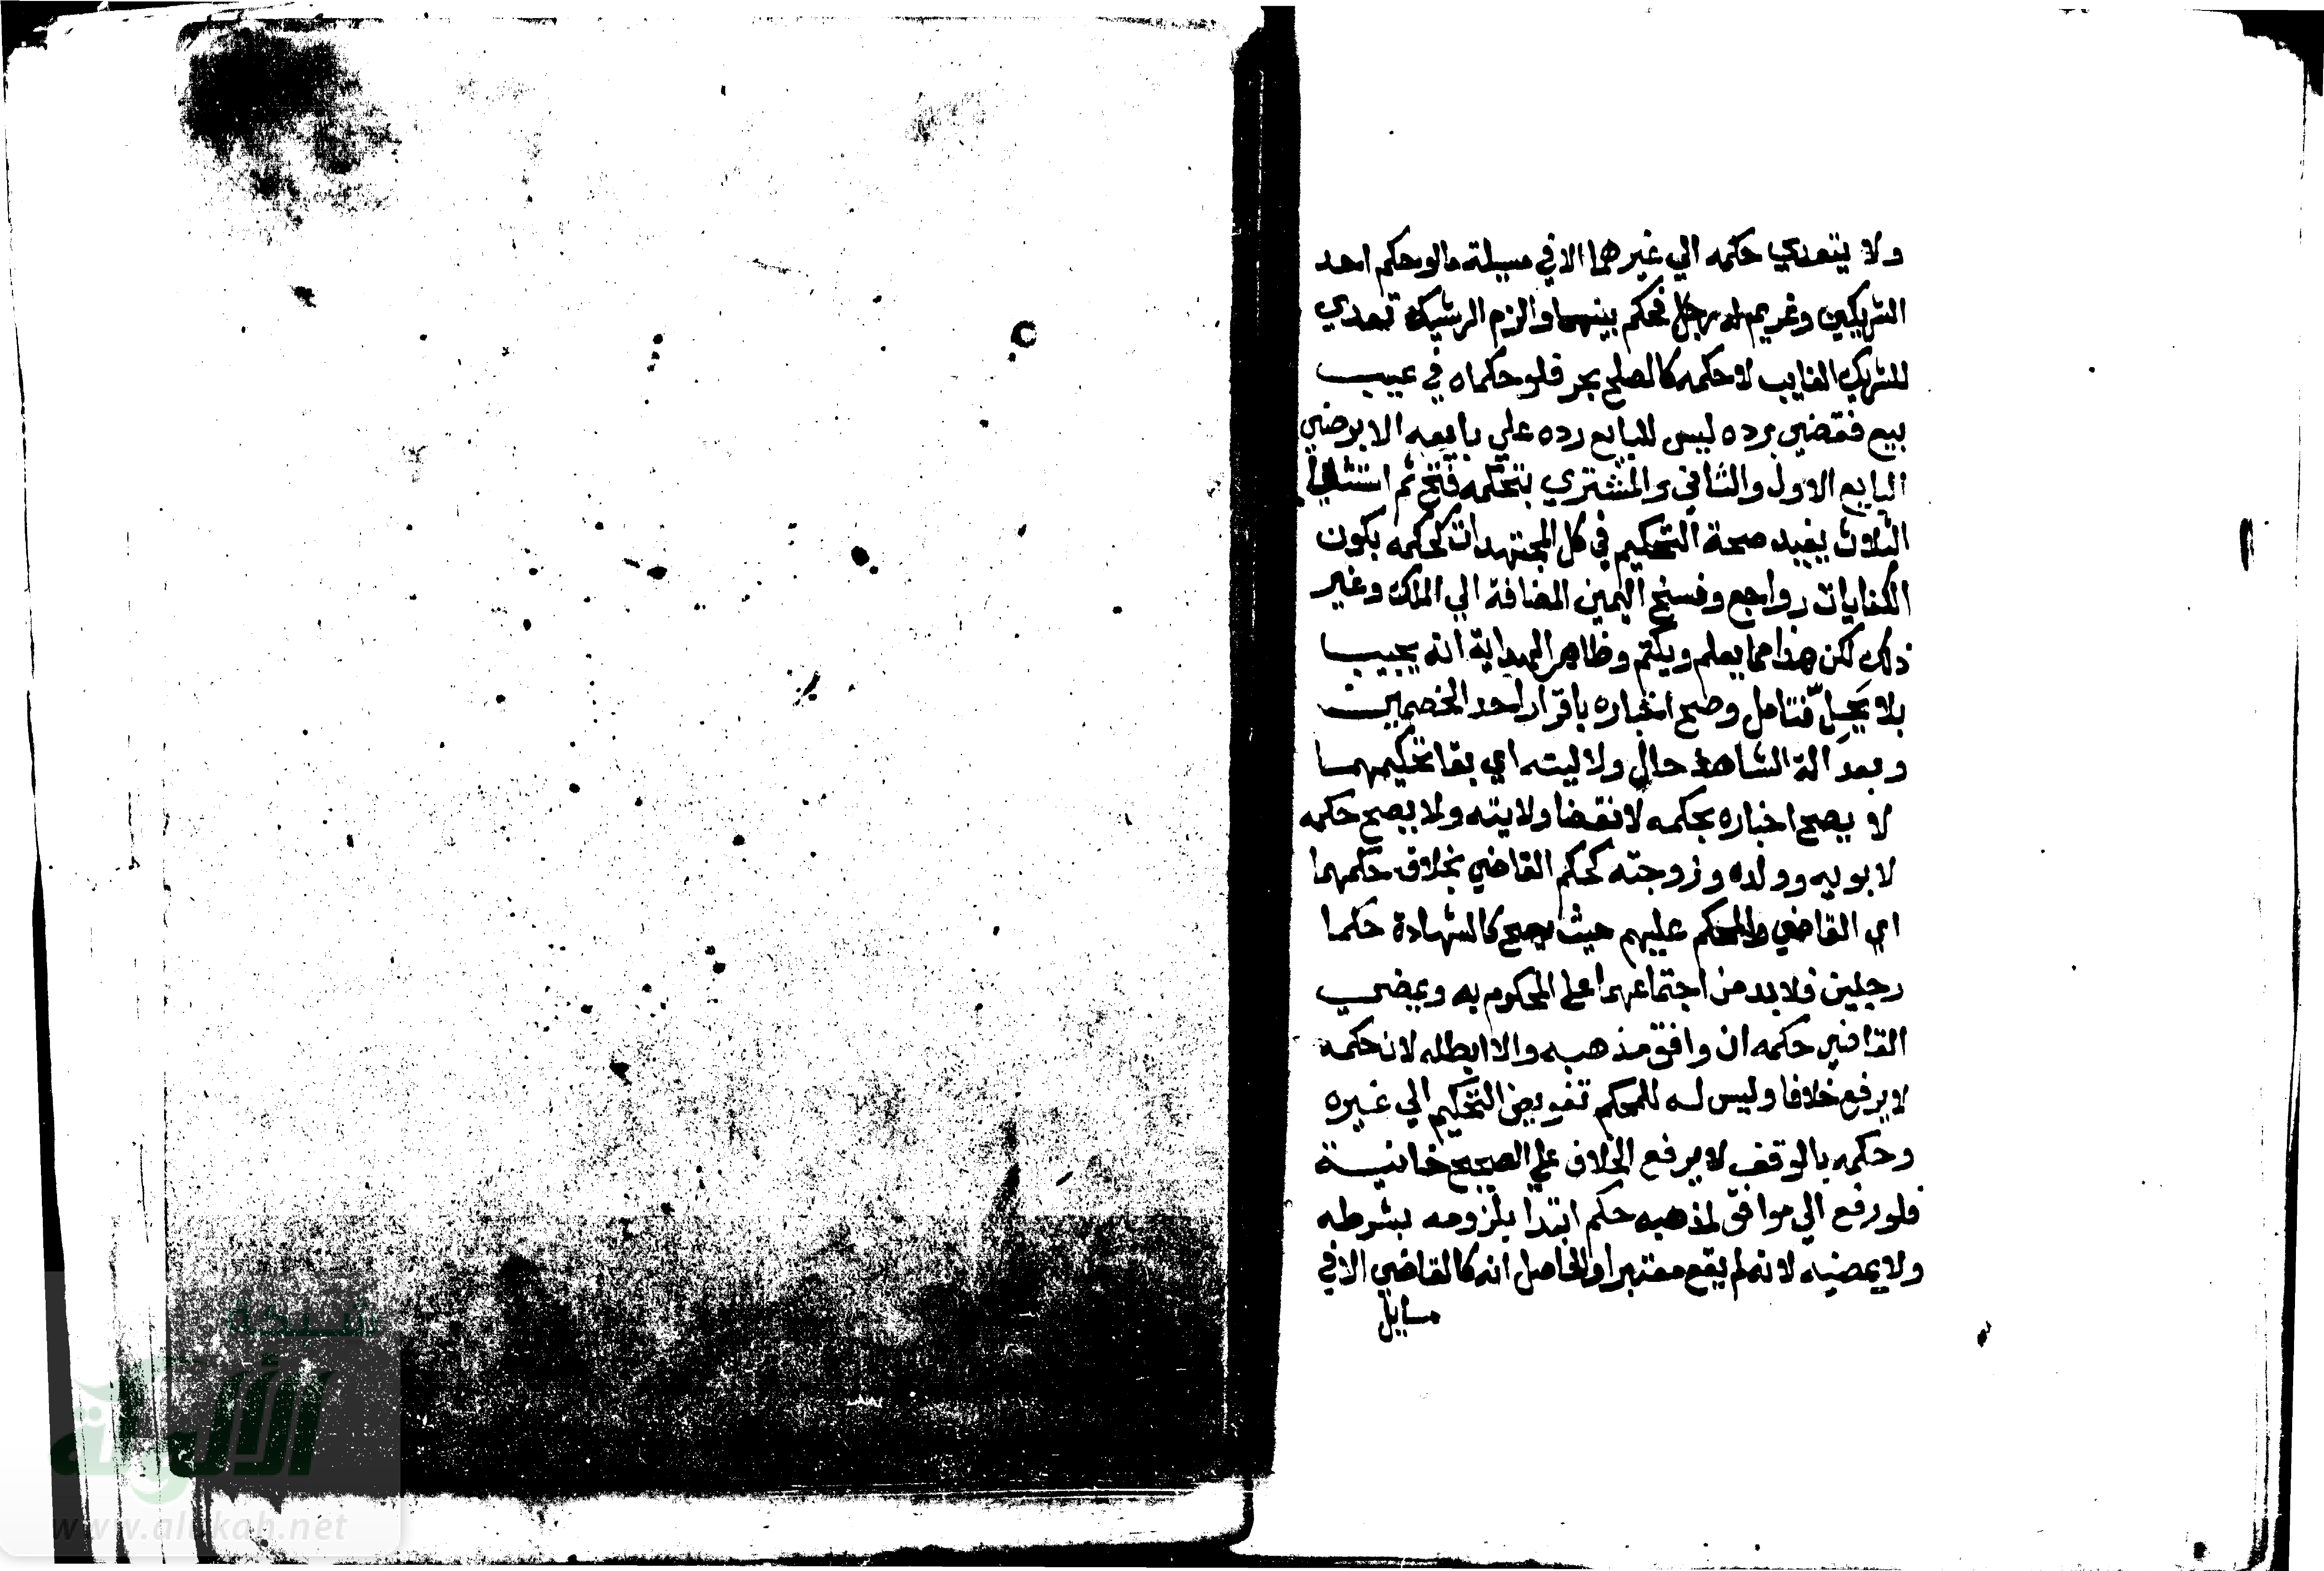 ولا يتعدي حكمه الي غيرهما الا في مسيلة مالو حكم احد
الشريكين وغريم له رجل فحكم بينهما والزم الشريك تعدي
للشريك الغايب لان حكمه كالصلح بحر فلو حكماه في عيب
بيع فقضي برده ليس للبايع رده علي بايعه الا برضي
البايع الاول والثاني والمشتري بتحكيمه فتح ثم استثنا
الثلاث يفيد صحة التحكيم في كل المجتهدات كحكمه بكون
الكنايات رواجع وفسخ اليمين المضافة الي الملك وغير
ذلك لكن هذا مما يعلم ويكتم وظاهر الهداية انه يجيب
بلا يحل فتامل وصح اخباره باقرار احد الخصمين
وبعدالة الشاهد حال ولايته اي بقا تحكيمهما
لا يصح اخباره بحكمه لانقضا ولايته ولا يصح حكمه
لابويه وولده وزوجته كحكم القاضي بخلاف حكمهما
اي القاضي والمحكم عليهم حيث يصح كالشهادة حكما
رجلين فلا بد من اجتماعهما علي المحكوم به ويمضي
القاضي حكمه ان وافق مذهبه والا ابطله لان حكمه
لا يرفع خلافا وليس له للمحكم تفويض التحكيم الي غيره
وحكمه بالوقف لا يرفع الخلاف علي الصحيح خانية
فلو رفع الي موافق لمذهبه حكم ابتدا بلزومه بشرطه
ولا يمضيه لانه لم يقع معتبرا والحاصل انه كالقاضي الا في
مسايل
شبكة
الألوكة
www.alukah.net